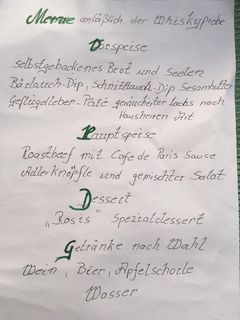 Menue anläßlich der Whiskyprobe
Vorspeise
selbstgebackenes Brot und Seelen
Bärlauch-Dip, Schnittlauch-Dip Sesambutter
Geflügelleber-Paté geräucherter Lachs nach
Hausherren Art
Hauptspeise
Roastbeef mit Cafe de Paris Sauce
Adler Knöpfle und gemischter Salat
Dessert
„Rosis" Spezialdessert
Getränke nach Wahl
Wein, Bier, Apfelschorle
Wasser